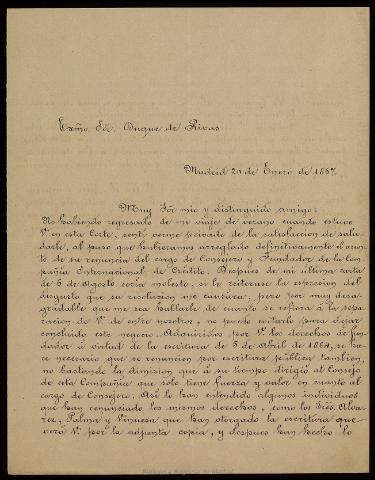 Exmo Sór. Duque de Rivas
Madrid 20 de Enero de 1867.
Muy Sór mio y distinguido amigo:
No habiendo regresado de mi viaje de verano cuando estuvo
V. en esta Corte, sentí verme privado de la satisfaccion de salu-
darle, al paso que hubieramos arreglado definitivamente el asun-
to de su renuncia del cargo de Consejero y Fundador de la Com-
pañia Internacional de Crédito. Despues de mi última carta
de 6 de Agosto seria molesto, si le reiterase la espresion del
disgusto que su resolucion me causara, pero por muy desa-
gradable que me sea hablarle de cuanto se refiera á la separa-
cion de V. de entre nosotros, no puedo evitarlo para dejar
concluido este negocio. Adquiridos por V. los derechos de fun-
dador á virtud de la escritura de 5 de Abril de 1864, se ha-
ce necesario que se renuncien por escritura pública tambien,
no bastando la dimision que á su tiempo dirigió al Consejo
de esta Compañia que solo tiene fuerza y valor en cuanto al
cargo de Consejero. Así lo han entendido algunos individuos
que han renunciado los mismos derechos, como los Sres. Alva-
rez, Palma y Vinuesa que han otorgado la escritura que
verá V. por la adjunta copia, y despues han hecho lo